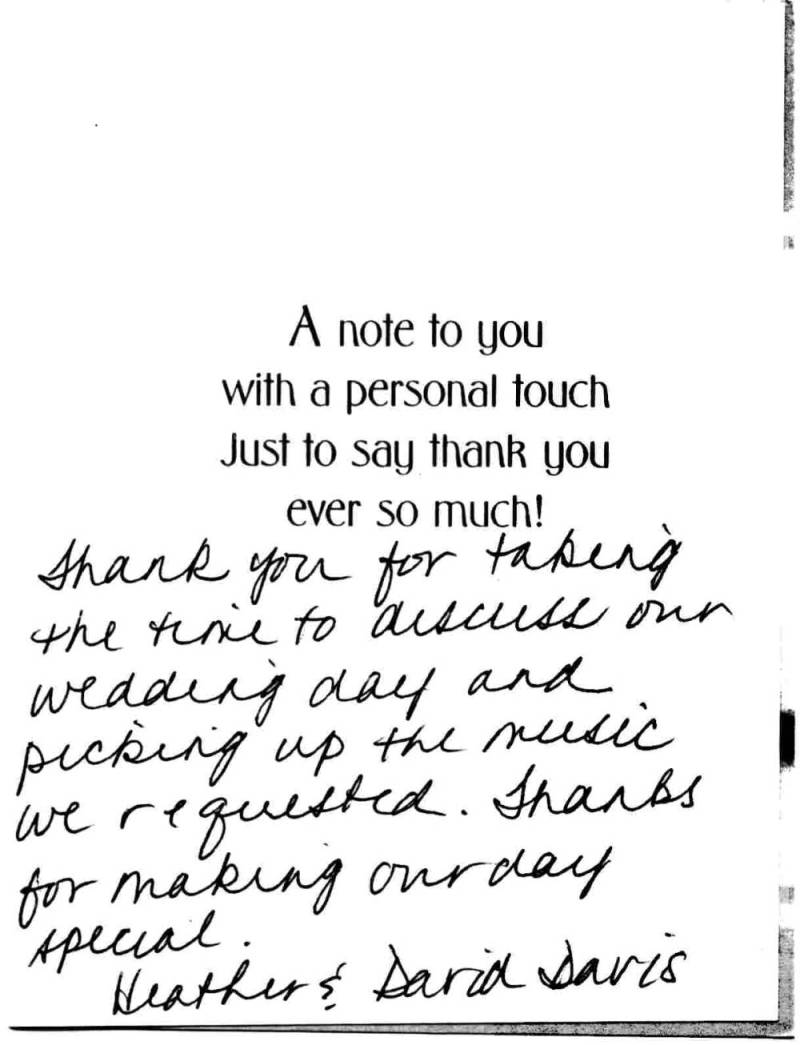 A note to you
with a personal touch
Just to say thank you
ever so much!
Thank you for taking
the time to discuss our
wedding day and
picking up the music
we requested. Thanks
for making our day
special.
Heather & David Davis